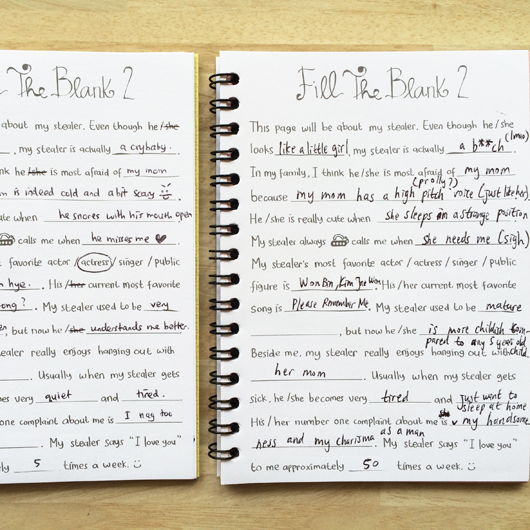 The Blank 2
about my stealer. Even though he/she
, my stealer is actually a crybaby.
he/she is most afraid of my mom
is indeed cold and a bit scary
when he snores with his mouth open
calls me when he misses me
favorite actor / actress / singer / public
hye. His/her current most favorite
? My stealer used to be very
, but now he/she understands me better.
stealer really enjoys hanging out with
. Usually when my stealer gets
very quiet and tired.
one complaint about me is I nag too
. My stealer says "I love you"
5 times a week.
Fill The Blank 2
This page will be about my stealer. Even though he/she
looks like a little girl, my stealer is actually a b**ch (lmao)
In my family, I think he/she is most afraid of my mom
because my mom has a high pitch (prolly?) voice (just like her)
He/She is really cute when she sleeps in a strange position
My stealer always calls me when she needs me (sigh)
My stealer's most favorite actor / actress / singer / public
figure is Won Bin, Kim Tae Won His/Her current most favorite
Song is Please Remember Me. My stealer used to be mature
, but now he/she is more childish com-
pared to any 5 years old child.
Beside me, my stealer really enjoys hanging out with
her mom. Usually when my stealer gets
sick, he/she becomes very tired and just want to sleep at home
His/her number one complaint about me is my handsome
ness and my charisma as a man. My stealer says "I love you"
to me approximately 50 times a week.